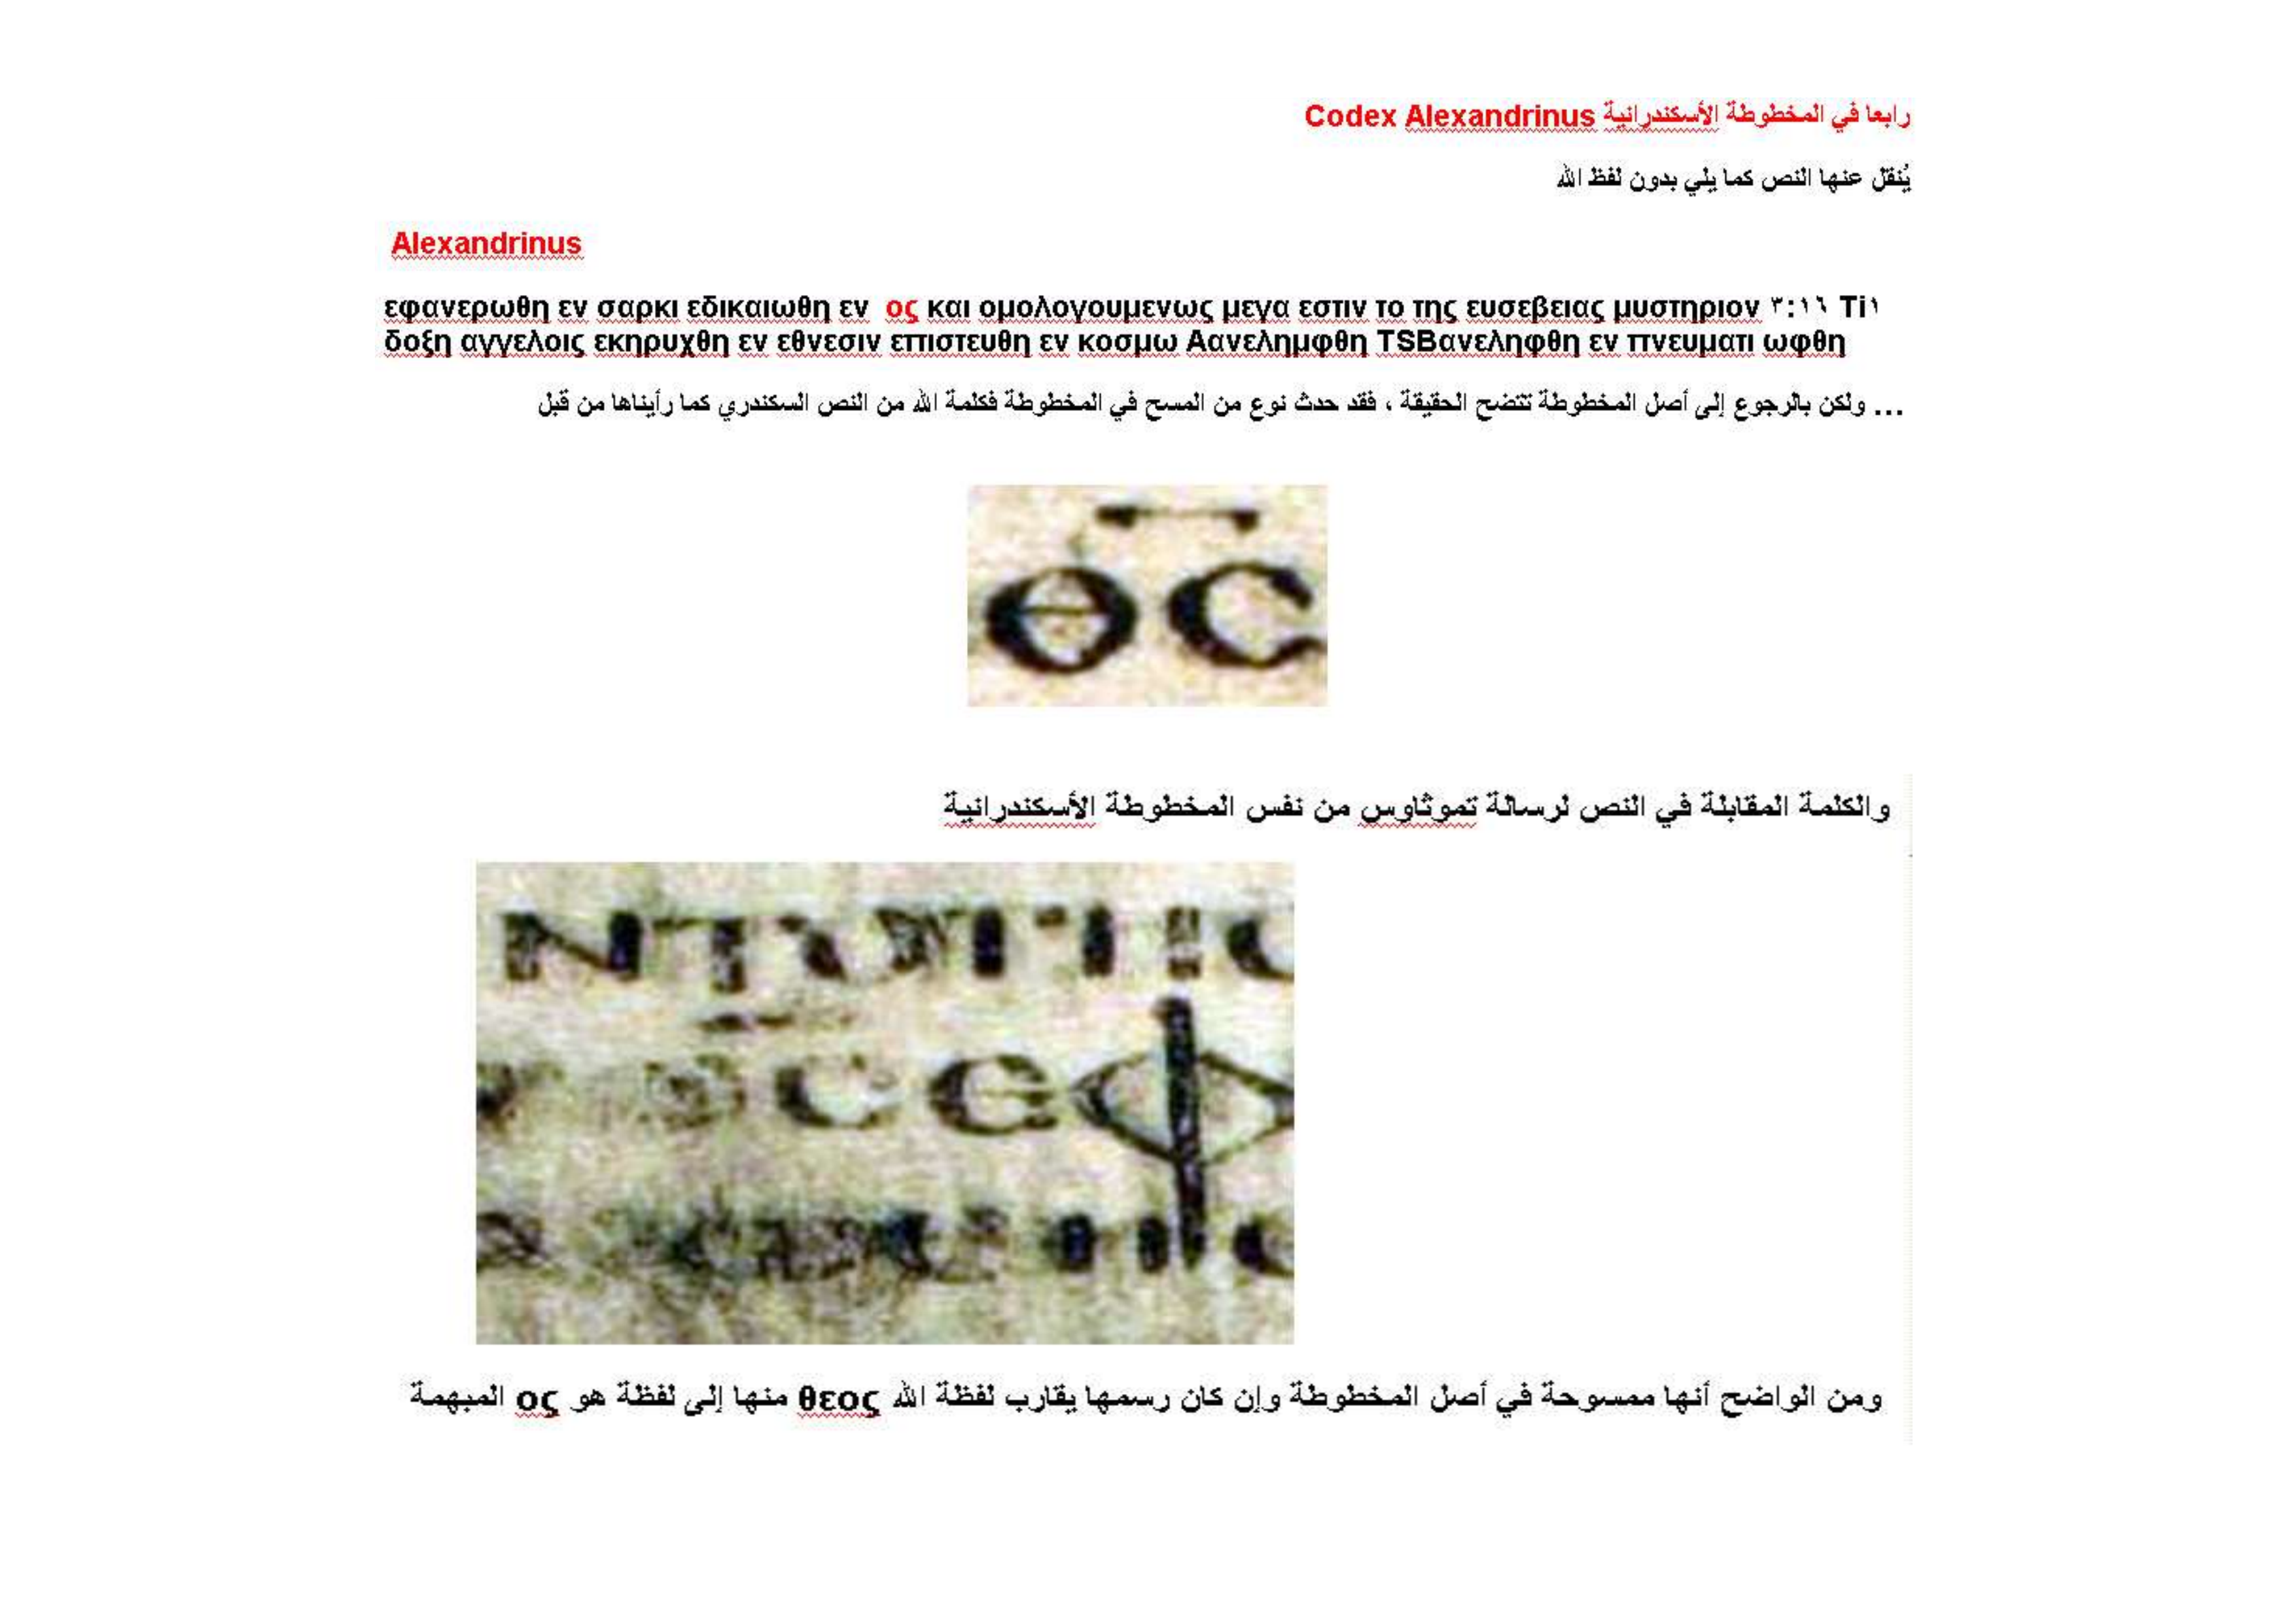 رابعا في المخطوطة الأسكندرانية Codex Alexandrinus
يُنقل عنها النص كما يلي بدون لفظ الله
Alexandrinus
εφανερωθη εν σαρκι εδικαιωθη εν ος και ομολογουμενως μεγα εστιν το της ευσεβειας μυστηριον ٣:١٦ Ti١
δοξη αγγελοις εκηρυχθη εν εθνεσιν επιστευθη εν κοσμω Αανελημφθη TSBανεληφθη εν πνευματι ωφθη
... ولكن بالرجوع إلى أصل المخطوطة تتضح الحقيقة ، فقد حدث نوع من المسح في المخطوطة فكلمة الله من النص السكندري كما رأيناها من قبل
ΘC
والكلمة المقابلة في النص لرسالة تموثاوس من نفس المخطوطة الأسكندرانية
ومن الواضح أنها ممسوحة في أصل المخطوطة وإن كان رسمها يقارب لفظة الله θεος منها إلى لفظة هو ος المبهمة